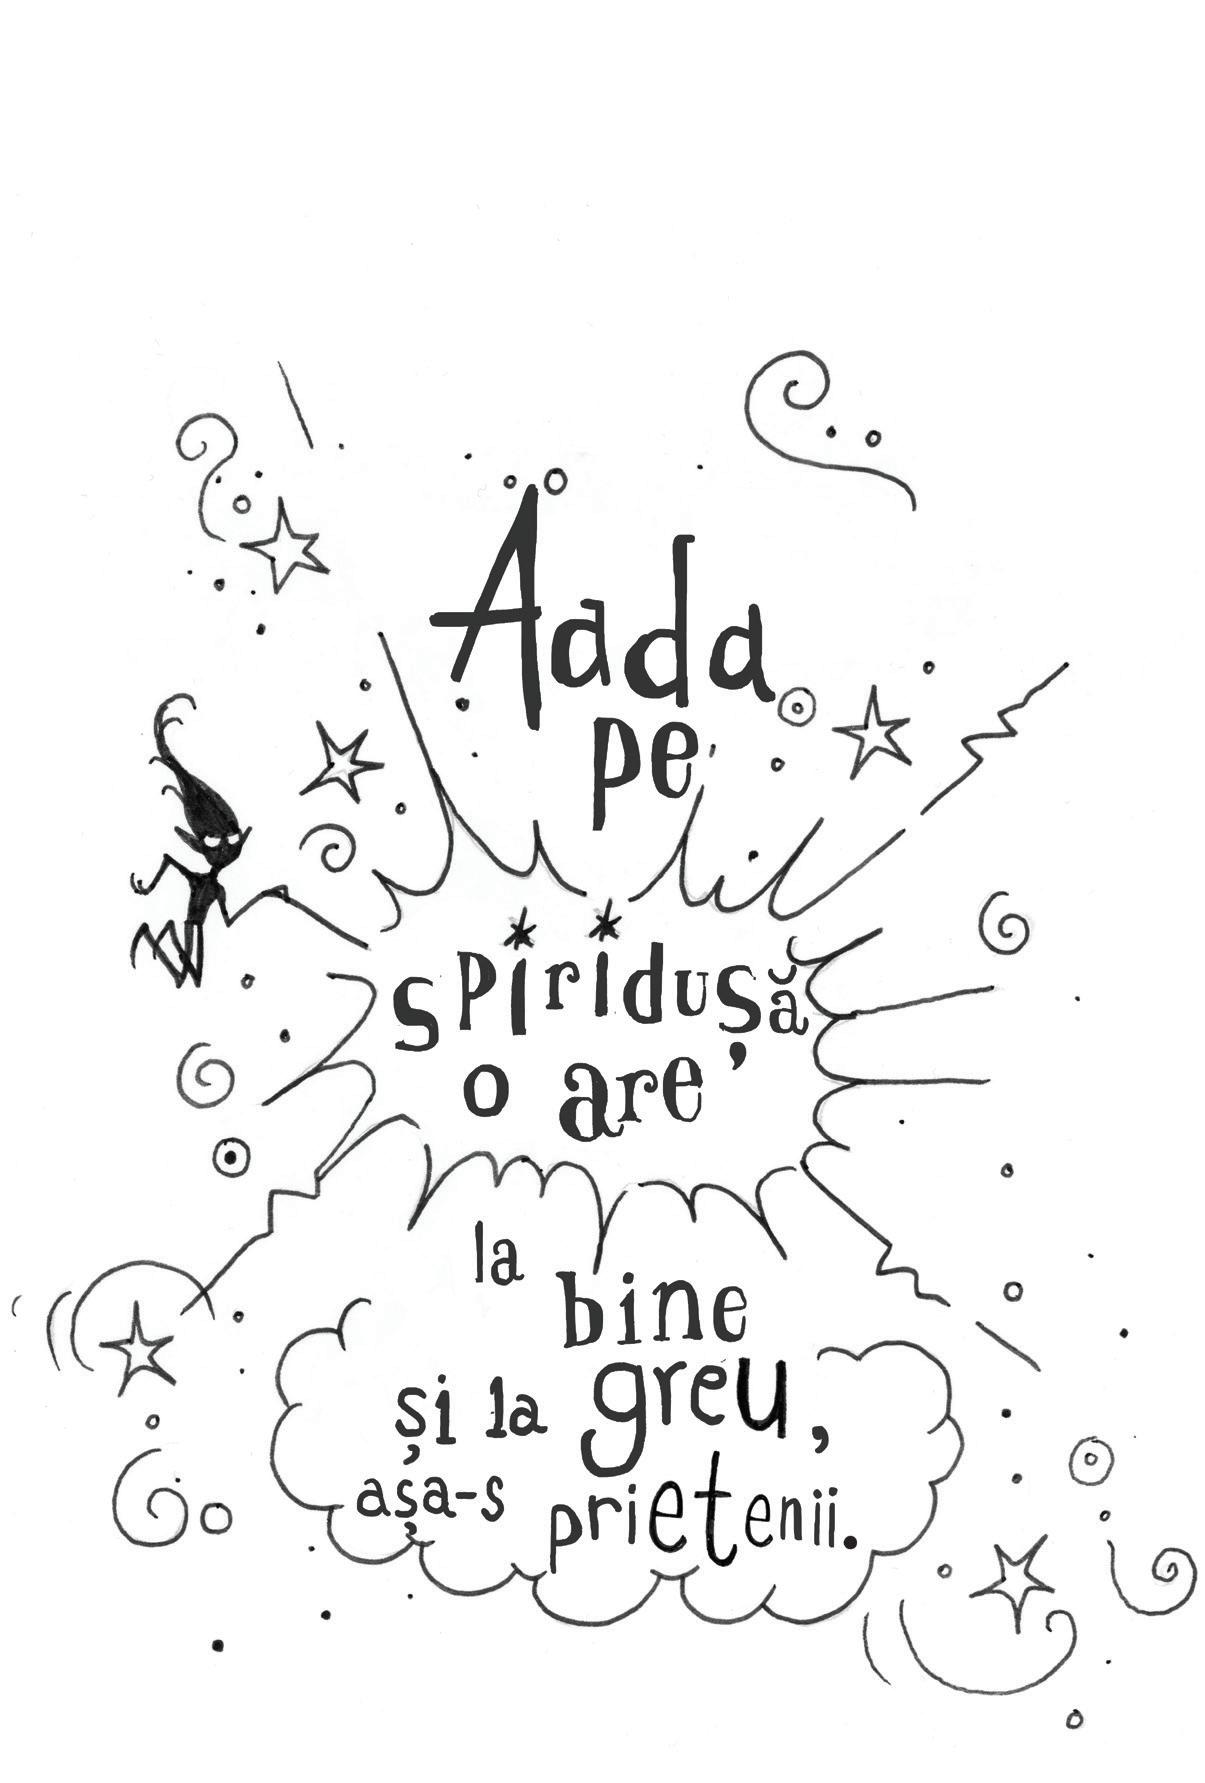 Aada
pe
spiridușă
o are
la
bine
și la greu,
așa-s prietenii.